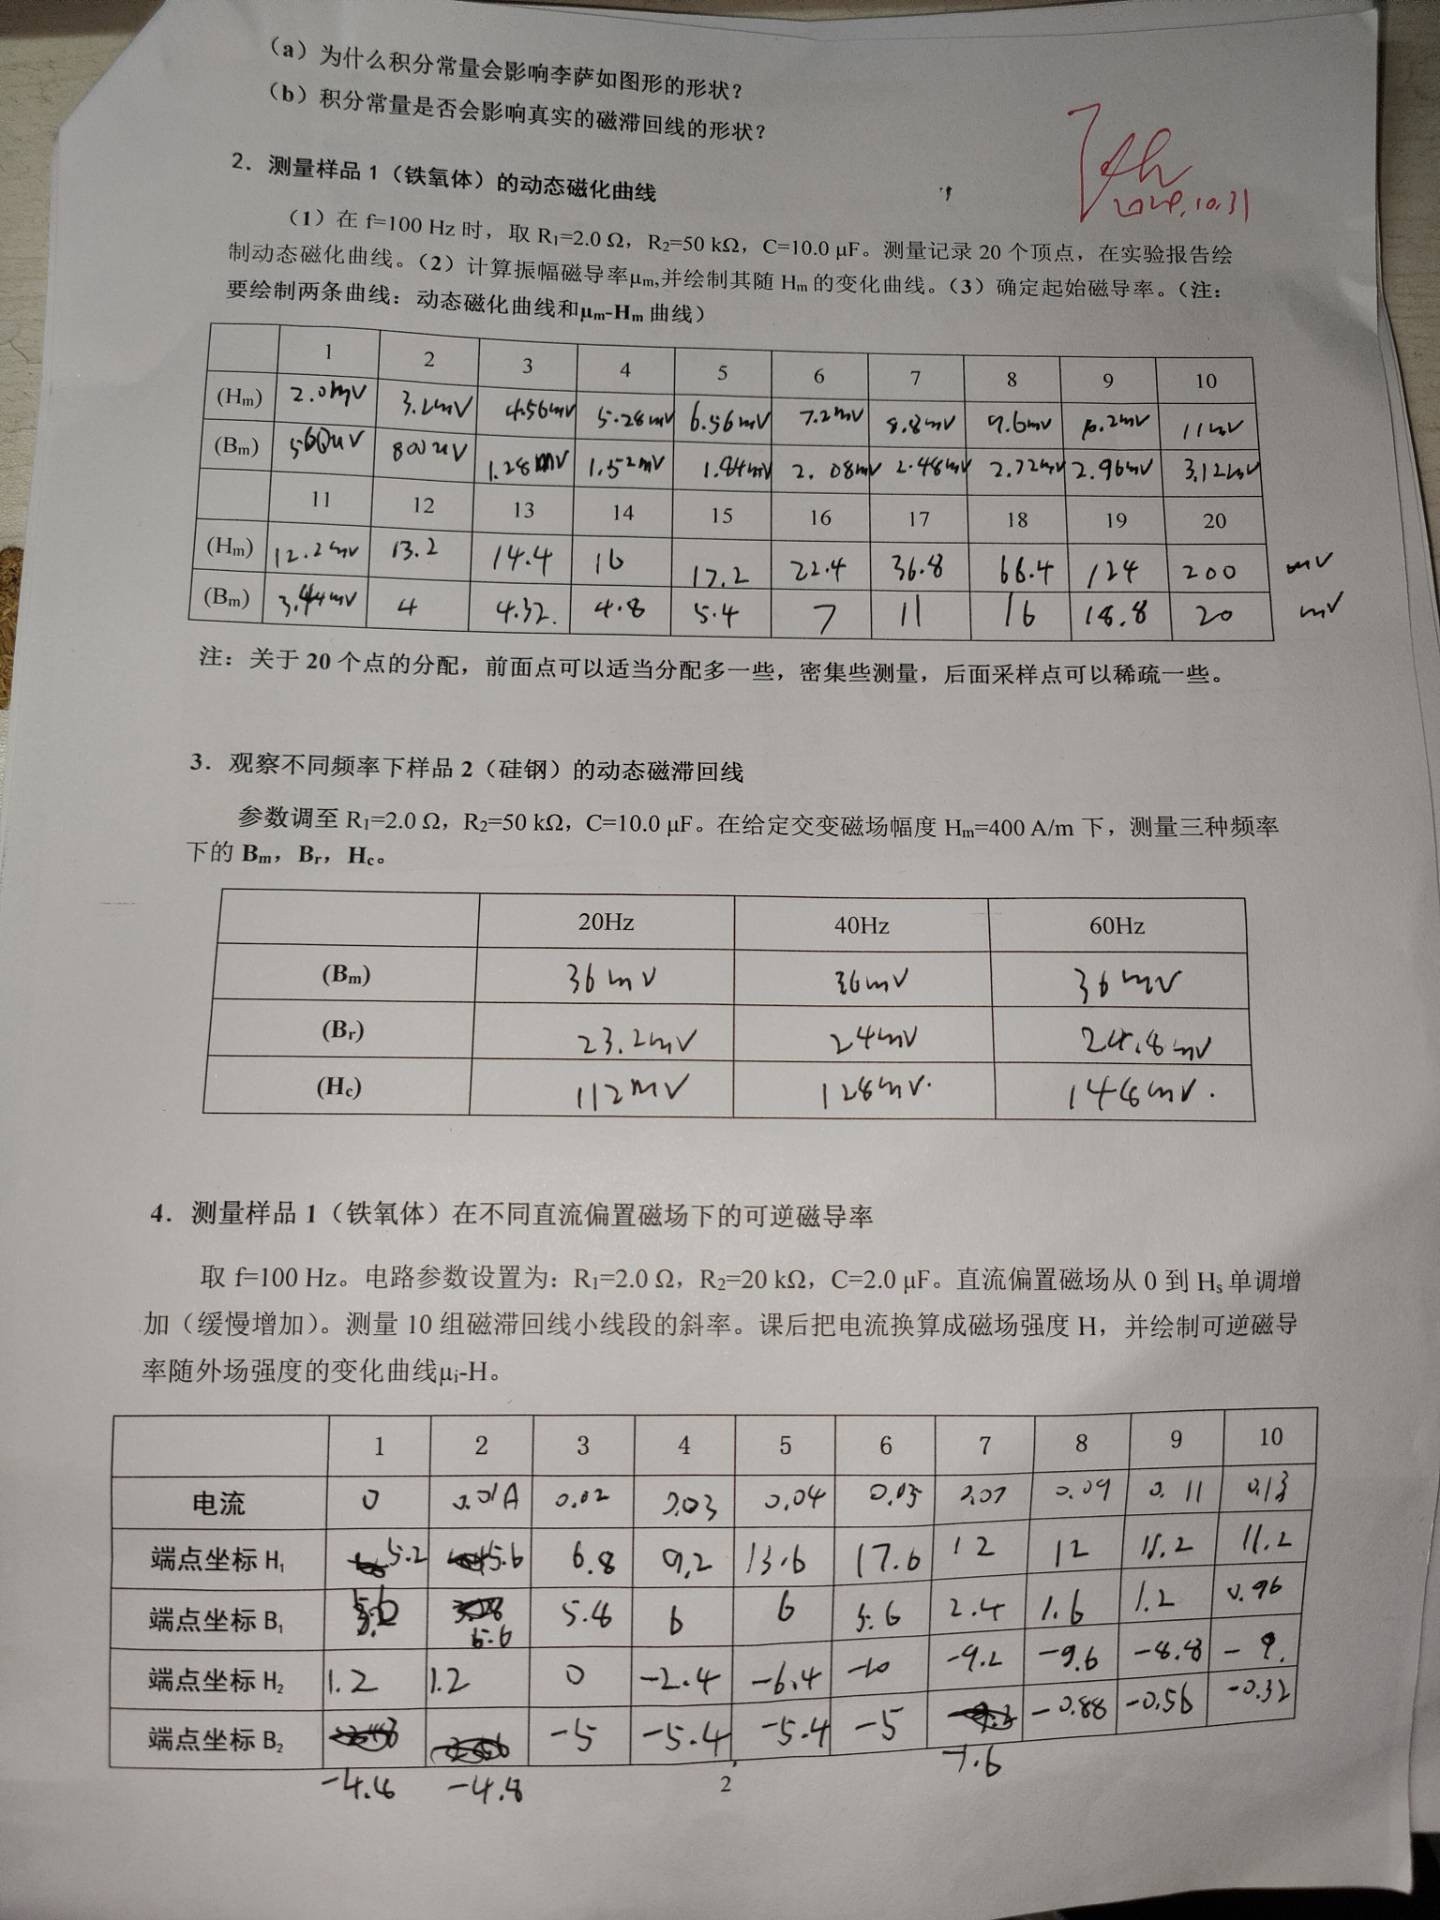 （a）为什么积分常量会影响李萨如图形的形状？
（b）积分常量是否会影响真实的磁滞回线的形状？
2024.10.31
2．测量样品 1（铁氧体）的动态磁化曲线
（1）在 f=100 Hz 时，取 R₁=2.0 Ω，R₂=50 kΩ，C=10.0 μF。测量记录 20 个顶点，在实验报告绘
制动态磁化曲线。（2）计算振幅磁导率μₘ,并绘制其随 Hₘ 的变化曲线。（3）确定起始磁导率。（注：
要绘制两条曲线：动态磁化曲线和μₘ-Hₘ 曲线）
1 2 3 4 5 6 7 8 9 10
(Hₘ) 2.0mV 3.2mV 4.56mV 5.28mV 6.56mV 7.2mV 8.8mV 9.6mV 10.2mV 11mV
(Bₘ) 560uV 800uV 1.28mV 1.52mV 1.84mV 2.08mV 2.48mV 2.72mV 2.96mV 3.12mV
11 12 13 14 15 16 17 18 19 20
(Hₘ) 12.2mV 13.2 14.4 16 17.2 22.4 36.8 66.4 124 200 mV
(Bₘ) 3.44mV 4 4.32. 4.8 5.4 7 11 16 18.8 20 mV
注：关于 20 个点的分配，前面点可以适当分配多一些，密集些测量，后面采样点可以稀疏一些。
3．观察不同频率下样品 2（硅钢）的动态磁滞回线
参数调至 R₁=2.0 Ω，R₂=50 kΩ，C=10.0 μF。在给定交变磁场幅度 Hₘ=400 A/m 下，测量三种频率
下的 Bₘ，Bᵣ，H꜀。
20Hz 40Hz 60Hz
(Bₘ) 36mV 36mV 36mV
(Bᵣ) 23.2mV 24mV 24.8mV
(H꜀) 112mV 128mV. 148mV.
4．测量样品 1（铁氧体）在不同直流偏置磁场下的可逆磁导率
取 f=100 Hz。电路参数设置为：R₁=2.0 Ω，R₂=20 kΩ，C=2.0 μF。直流偏置磁场从 0 到 Hₛ 单调增
加（缓慢增加）。测量 10 组磁滞回线小线段的斜率。课后把电流换算成磁场强度 H，并绘制可逆磁导
率随外场强度的变化曲线μᵢ-H。
1 2 3 4 5 6 7 8 9 10
电流 0 0.01A 0.02 0.03 0.04 0.05 0.07 0.09 0.11 0.13
端点坐标 H₁ 5.2 5.6 6.8 9.2 13.6 17.6 12 12 11.2 11.2
端点坐标 B₁ 5.6 5.8 6 6 5.6 2.4 1.6 1.2 0.96
端点坐标 H₂ 1.2 1.2 0 -2.4 -6.4 -10 -9.2 -9.6 -8.8 -9.
端点坐标 B₂ -5 -5.4 -5.4 -5 -0.88 -0.56 -0.32
-4.8 -4.8 -1.6
2